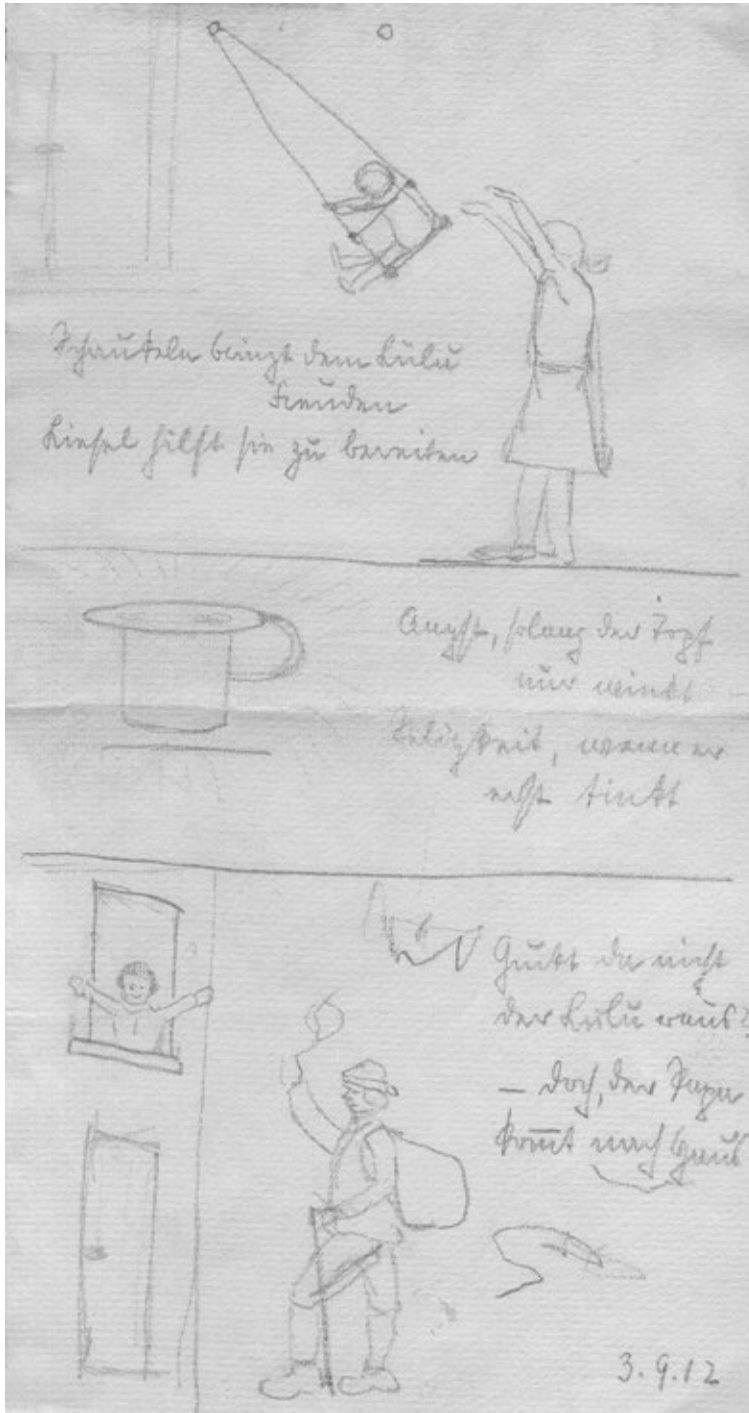 Schaukeln bringt dem Lulu
Freuden
Liesel hilft sie zu bereiten
Angst, solang der Topf
nur winkt
Seligkeit, wenn er
erst tinkt
Guckt da nicht
der Lulu raus?
— doch, der Papa
kom̅t nach Haus
3.9.12